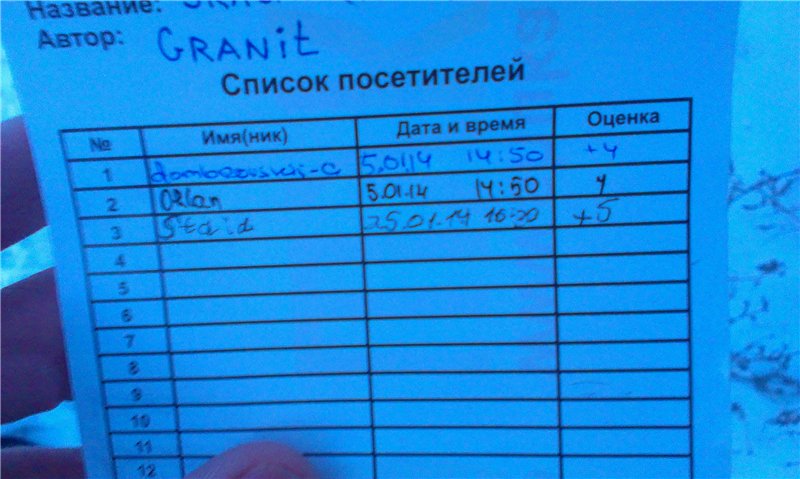 Название:
Автор: GRANIT
Список посетителей
№ Имя(ник) Дата и время Оценка
1 5.01.14 14:50 +4
2 Orlan 5.01.14 14:50 4
3 Staid 25.01.14 16:20 +5
4
5
6
7
8
9
10
11
12